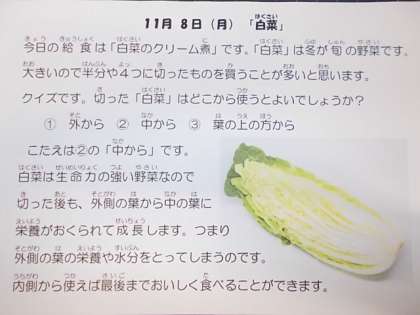 11月 8日（月）「白菜」
今日の給食は「白菜のクリーム煮」です。「白菜」は冬が旬の野菜です。
大きいので半分や４つに切ったものを買うことが多いと思います。
クイズです。切った「白菜」はどこから使うとよいでしょうか？
① 外から ② 中から ③ 葉の上の方から
こたえは②の「中から」です。
白菜は生命力の強い野菜なので
切った後も、外側の葉から中の葉に
栄養がおくられて成長します。つまり
外側の葉の栄養や水分をとってしまうのです。
内側から使えば最後までおいしく食べることができます。